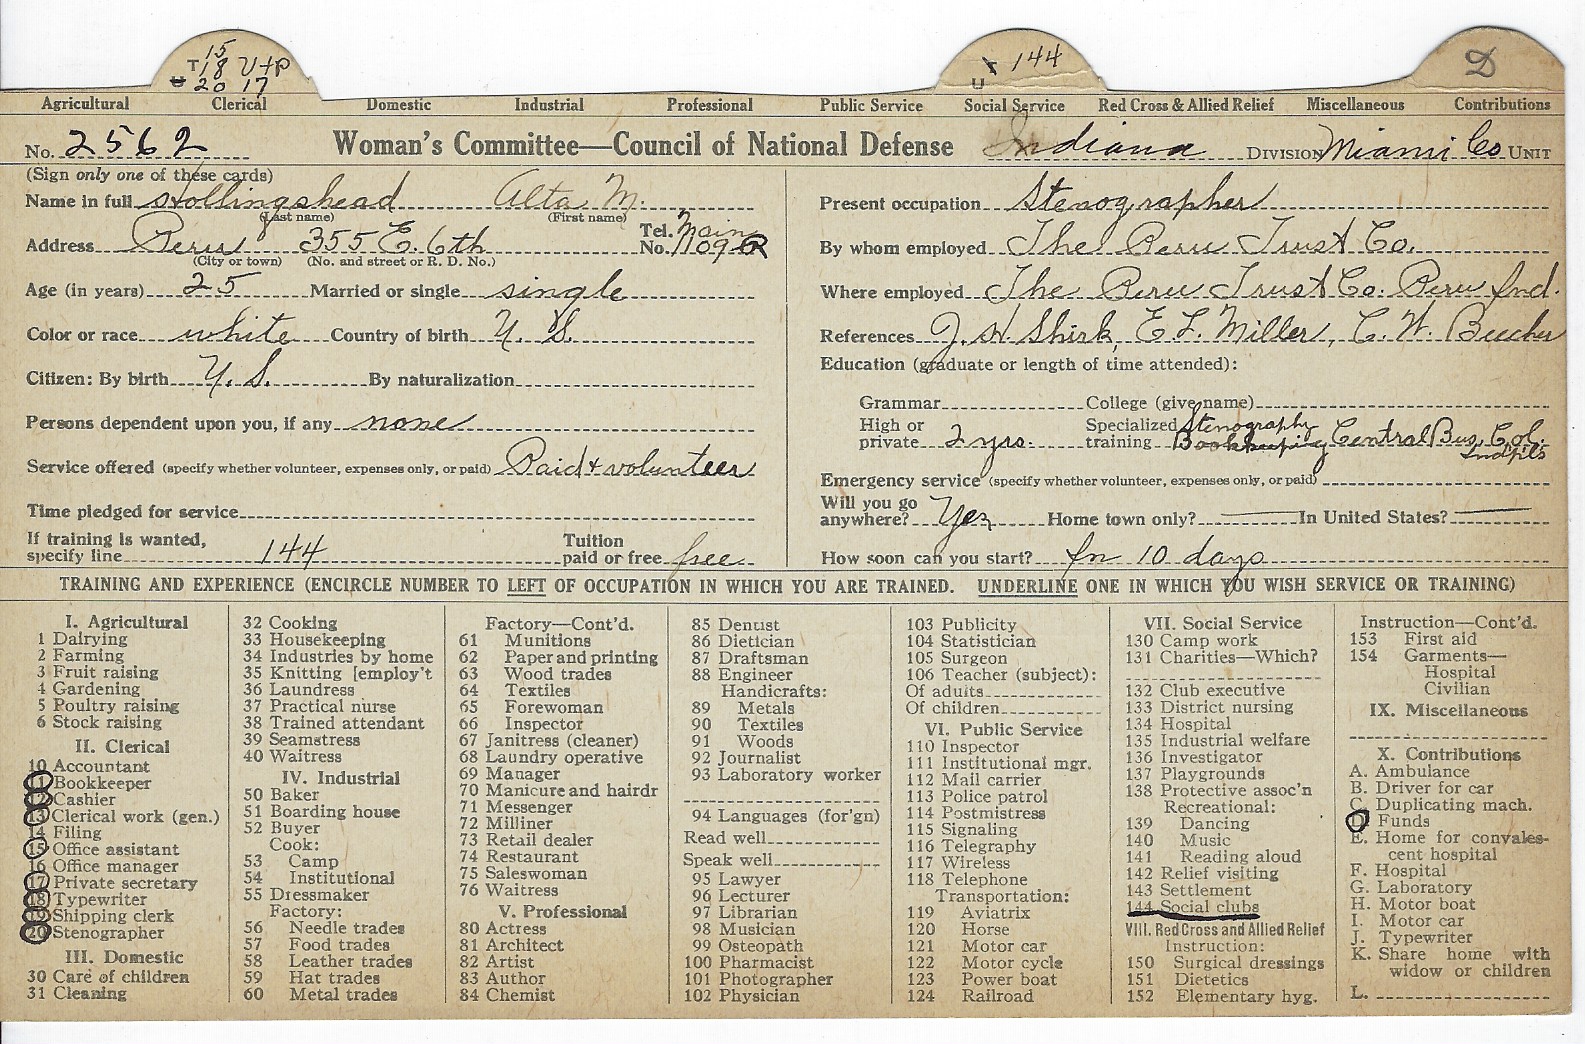 15
T 18 V+P
U 20 17
T 144
U
D
Agricultural Clerical Domestic Industrial Professional Public Service Social Service Red Cross & Allied Relief Miscellaneous Contributions
No. 2562 Woman's Committee—Council of National Defense Indiana DIVISION Miami Co UNIT
(Sign only one of these cards)
Name in full Hollingshead Alta M.
(Last name) (First name)
Address Peru 355 E. 6th Tel. No. Main 109 R
(City or town) (No. and street or R. D. No.)
Age (in years) 25 Married or single single
Color or race white Country of birth U. S.
Citizen: By birth U. S. By naturalization
Persons dependent upon you, if any none
Service offered (specify whether volunteer, expenses only, or paid) Paid + volunteer
Time pledged for service
If training is wanted, specify line 144 Tuition paid or free free
Present occupation Stenographer
By whom employed The Peru Trust Co.
Where employed The Peru Trust Co. Peru Ind.
References J. H. Shirk, E L. Miller, C. W. Beecher
Education (graduate or length of time attended):
Grammar College (give name)
High or private 2 yrs. Specialized training Stenography Bookkeeping Central Bus. Col. Indpl's
Emergency service (specify whether volunteer, expenses only, or paid)
Will you go anywhere? Yes Home town only? In United States?
How soon can you start? In 10 days
TRAINING AND EXPERIENCE (ENCIRCLE NUMBER TO LEFT OF OCCUPATION IN WHICH YOU ARE TRAINED. UNDERLINE ONE IN WHICH YOU WISH SERVICE OR TRAINING)
I. Agricultural
1 Dairying
2 Farming
3 Fruit raising
4 Gardening
5 Poultry raising
6 Stock raising
II. Clerical
10 Accountant
11 Bookkeeper
12 Cashier
13 Clerical work (gen.)
14 Filing
15 Office assistant
16 Office manager
17 Private secretary
18 Typewriter
19 Shipping clerk
20 Stenographer
III. Domestic
30 Care of children
31 Cleaning
32 Cooking
33 Housekeeping
34 Industries by home
35 Knitting [employ't
36 Laundress
37 Practical nurse
38 Trained attendant
39 Seamstress
40 Waitress
IV. Industrial
50 Baker
51 Boarding house
52 Buyer
Cook:
53 Camp
54 Institutional
55 Dressmaker
Factory:
56 Needle trades
57 Food trades
58 Leather trades
59 Hat trades
60 Metal trades
Factory—Cont'd.
61 Munitions
62 Paper and printing
63 Wood trades
64 Textiles
65 Forewoman
66 Inspector
67 Janitress (cleaner)
68 Laundry operative
69 Manager
70 Manicure and hairdr
71 Messenger
72 Milliner
73 Retail dealer
74 Restaurant
75 Saleswoman
76 Waitress
V. Professional
80 Actress
81 Architect
82 Artist
83 Author
84 Chemist
85 Dentist
86 Dietician
87 Draftsman
88 Engineer
Handicrafts:
89 Metals
90 Textiles
91 Woods
92 Journalist
93 Laboratory worker
94 Languages (for'gn)
Read well
Speak well
95 Lawyer
96 Lecturer
97 Librarian
98 Musician
99 Osteopath
100 Pharmacist
101 Photographer
102 Physician
103 Publicity
104 Statistician
105 Surgeon
106 Teacher (subject):
Of adults
Of children
VI. Public Service
110 Inspector
111 Institutional mgr.
112 Mail carrier
113 Police patrol
114 Postmistress
115 Signaling
116 Telegraphy
117 Wireless
118 Telephone
Transportation:
119 Aviatrix
120 Horse
121 Motor car
122 Motor cycle
123 Power boat
124 Railroad
VII. Social Service
130 Camp work
131 Charities—Which?
132 Club executive
133 District nursing
134 Hospital
135 Industrial welfare
136 Investigator
137 Playgrounds
138 Protective assoc'n
Recreational:
139 Dancing
140 Music
141 Reading aloud
142 Relief visiting
143 Settlement
144 Social clubs
VIII. Red Cross and Allied Relief
Instruction:
150 Surgical dressings
151 Dietetics
152 Elementary hyg.
Instruction—Cont'd.
153 First aid
154 Garments—
Hospital
Civilian
IX. Miscellaneous
X. Contributions
A. Ambulance
B. Driver for car
C. Duplicating mach.
D. Funds
E. Home for convales-
cent hospital
F. Hospital
G. Laboratory
H. Motor boat
I. Motor car
J. Typewriter
K. Share home with
widow or children
L.